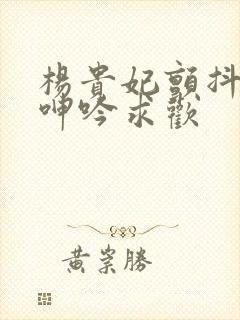 楊貴妃顫抖
呻吟求歡
黃崇勝